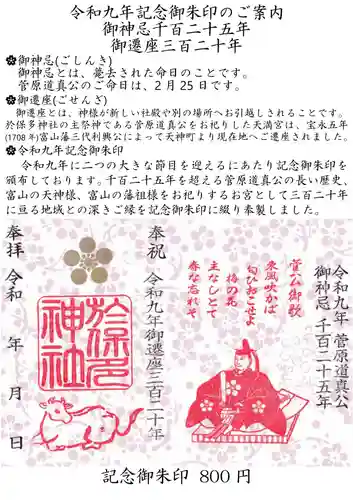 令和九年記念御朱印のご案内
御神忌千百二十五年
御遷座三百二十年
御神忌(ごしんき)
御神忌とは、薨去された命日のことです。
菅原道真公のご命日は、2月25日です。
御遷座(ごせんざ)
御遷座とは、神様が新しい社殿や別の場所へお引越しされることです。
於保多神社の主祭神である菅原道真公をお祀りした天満宮は、宝永五年
(1708年)富山藩三代利興公によって天神町より現在地へご遷座されました。
令和九年記念御朱印
令和九年に二つの大きな節目を迎えるにあたり記念御朱印を
頒布しております。千百二十五年を超える菅原道真公の長い歴史、
富山の天神様、富山の藩祖様をお祀りするお宮として三百二十年
に亘る地域との深きご縁を記念御朱印に綴り奉製しました。
令和九年 菅原道真公
御神忌千百二十五年
菅公御歌
東風吹かば
匂ひおこせよ
梅の花
主なしとて
春な忘れそ
奉祝 令和九年御遷座三百二十年
奉拝 令和 年 月 日
於保多
神社
記念御朱印 800円